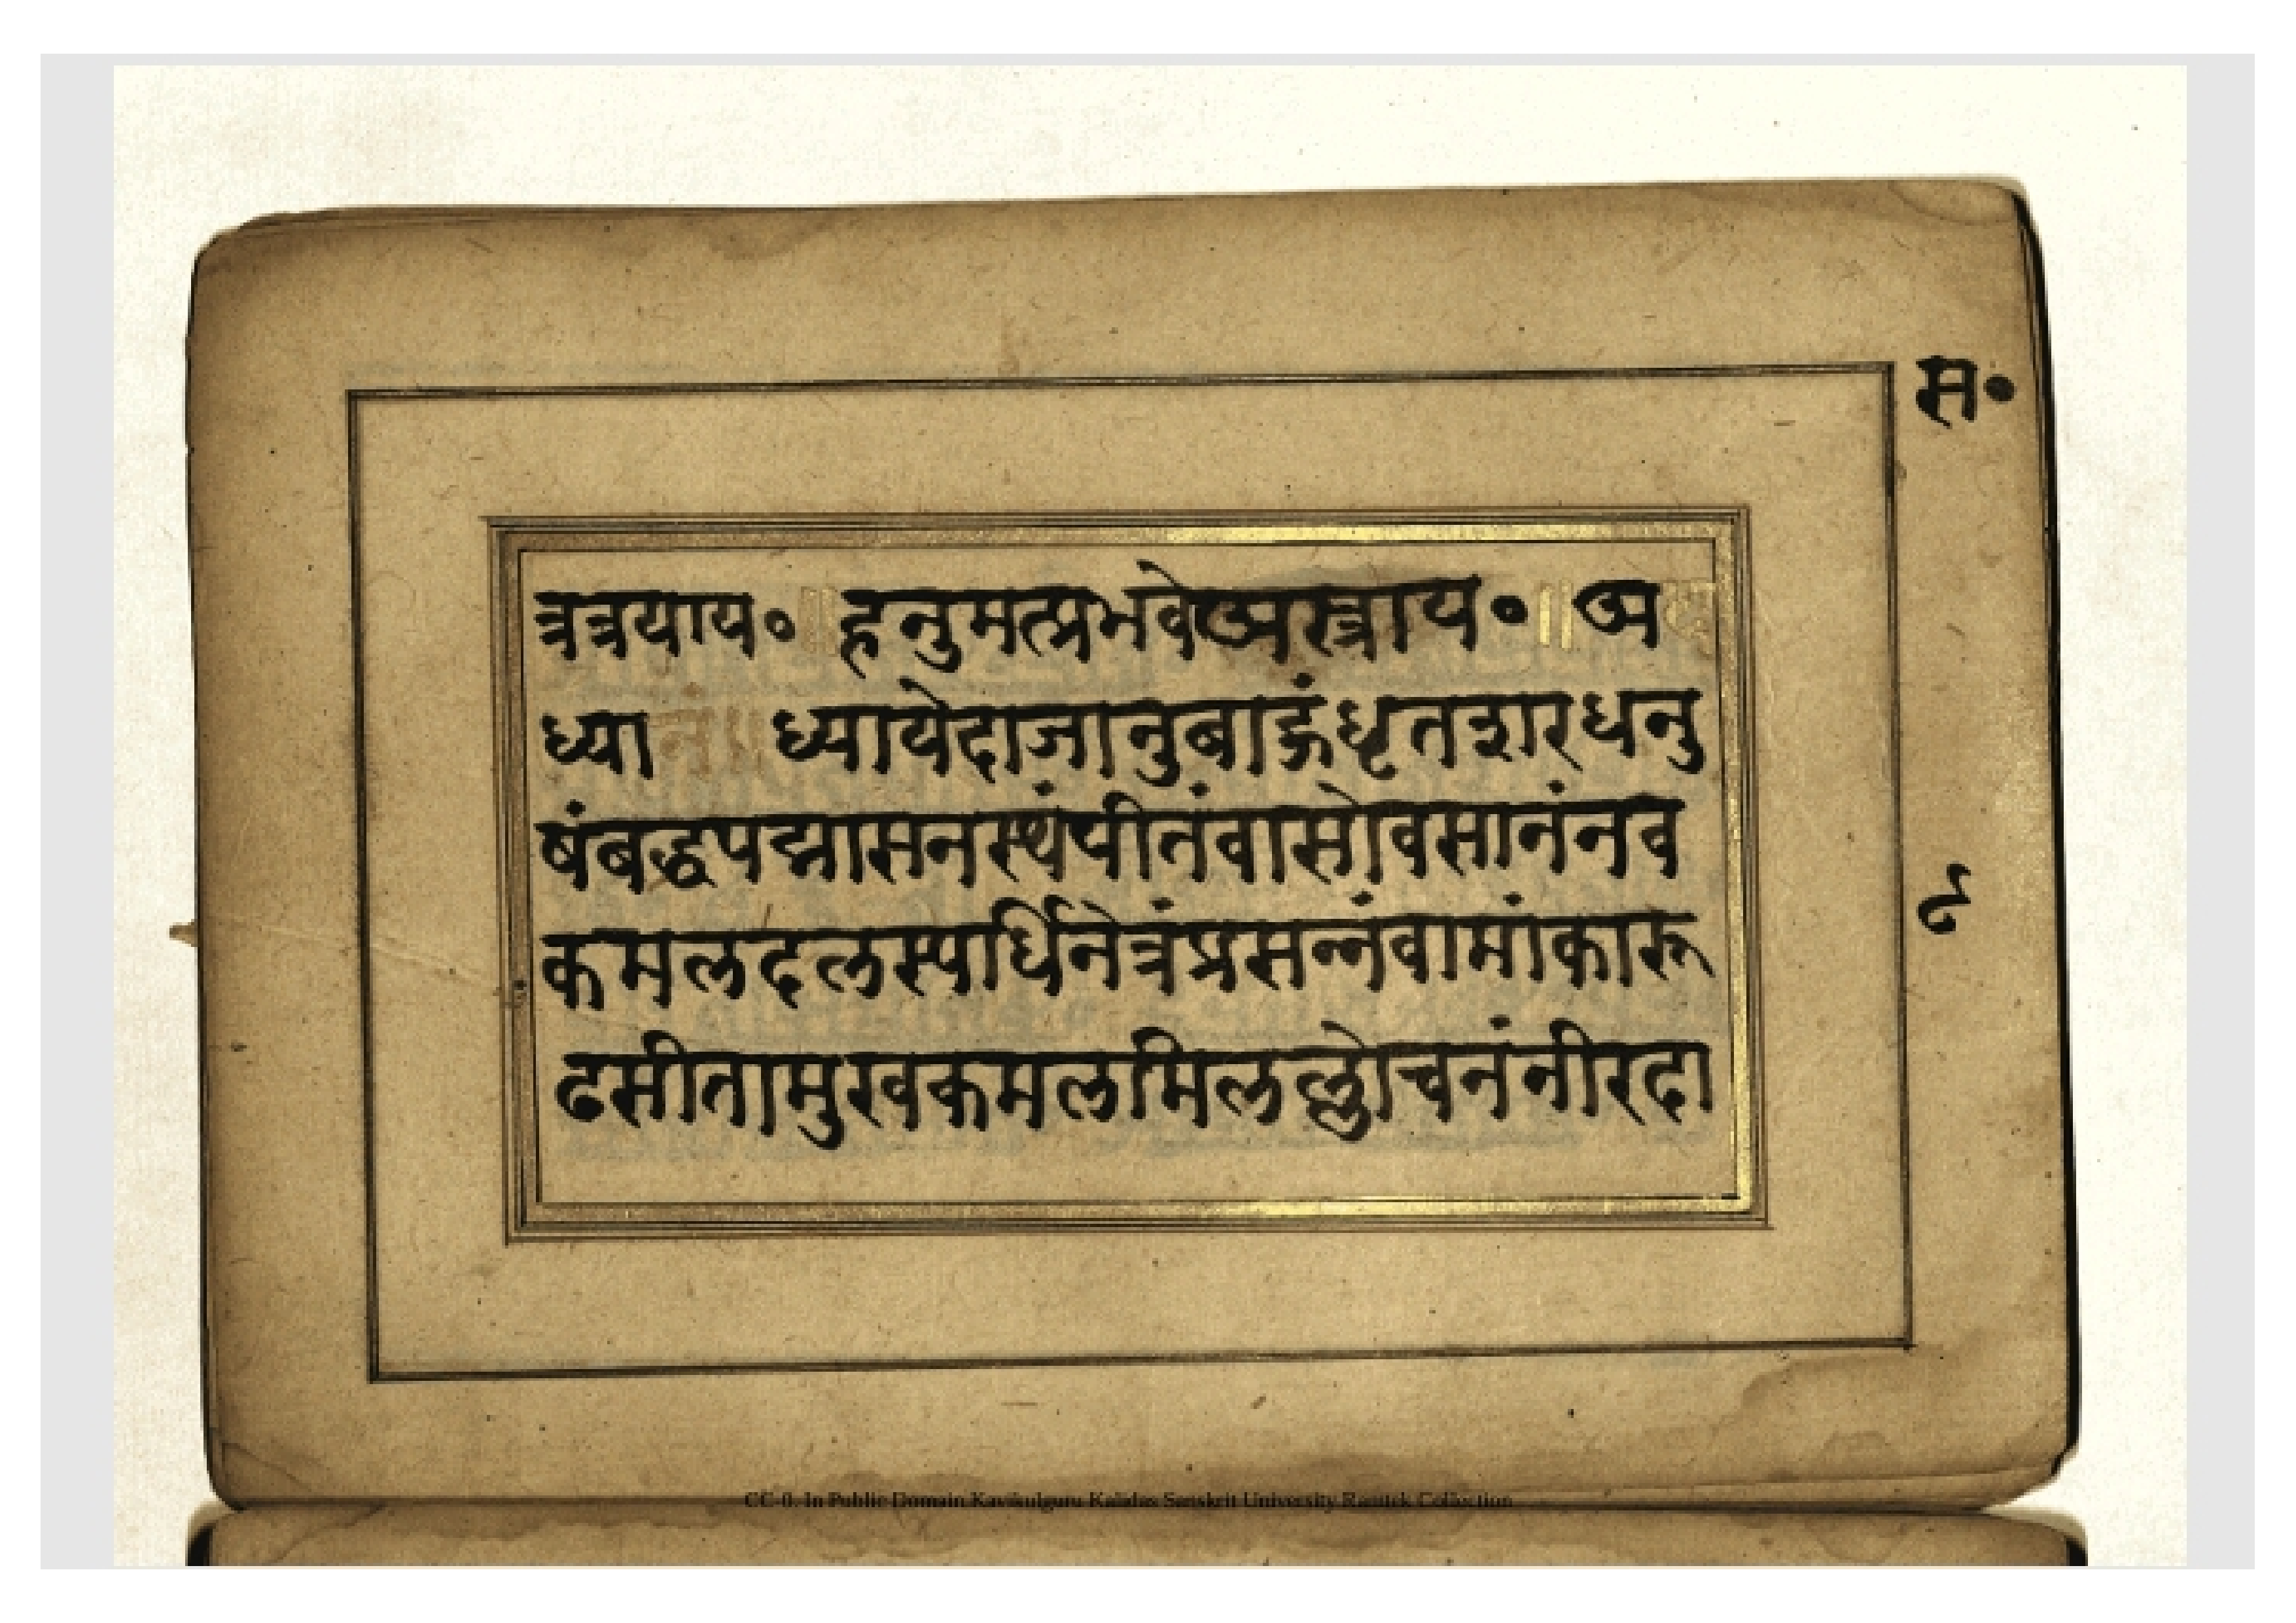 स॰
त्रत्रयाय॰ ॥ हनुमत्प्रभवेअस्त्राय॰ ॥ अ
ध्यानं॥ ध्यायेदाजानुबाहुंधृतशरधनु
षंबद्धपद्मासनस्थंपीतंवासोवसानंनव
कमलदलस्पर्धिनेत्रंप्रसन्नंवामांकारू
ढसीतामुखकमलमिलल्लोचनंनीरदा
CC-0. In Public Domain Kavikulguru Kalidas Sanskrit University Ramtek Collection